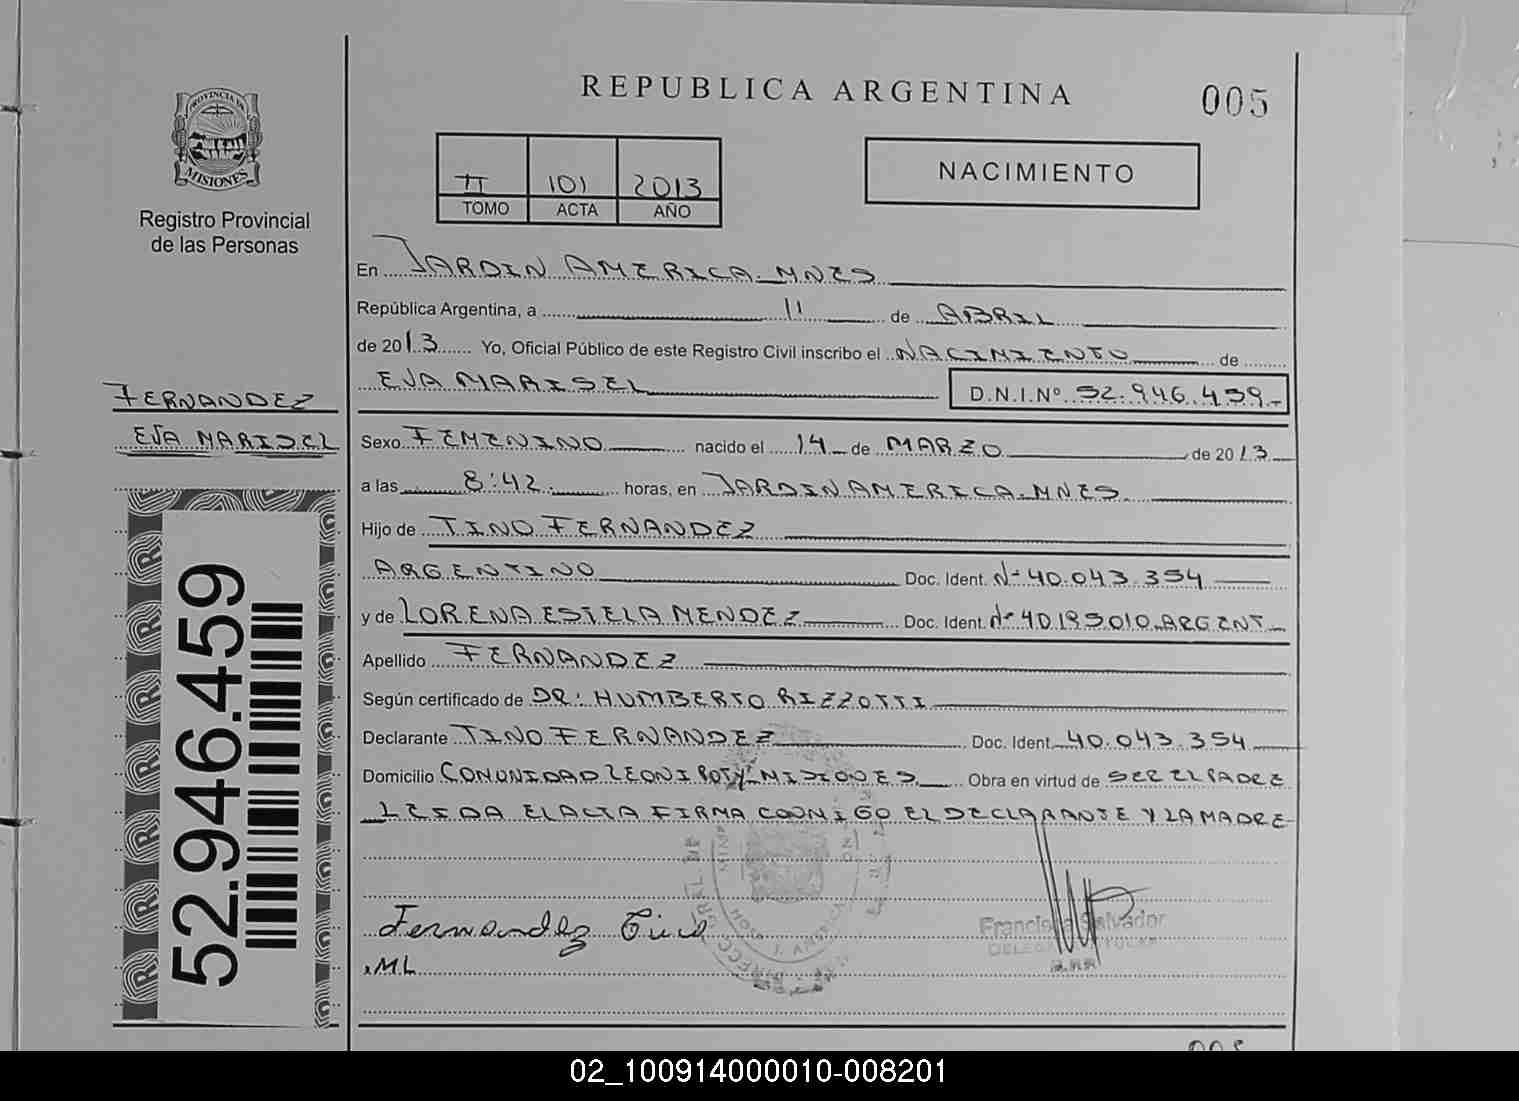 REPUBLICA ARGENTINA
005
PROVINCIA DE
MISIONES
Registro Provincial
de las Personas
II 101 2013
TOMO ACTA AÑO
NACIMIENTO
En JARDIN AMERICA. MNES
República Argentina, a 11 de ABRIL
de 2013 Yo, Oficial Público de este Registro Civil inscribo el NACIMIENTO de
EVA MARISEL D.N.I.Nº 52.946.459.-
FERNANDEZ
EVA MARISEL
Sexo FEMENINO nacido el 14 de MARZO de 2013
a las 8:42 horas, en JARDIN AMERICA. MNES.
Hijo de TINO FERNANDEZ
ARGENTINO Doc. Ident. Nº 40.043.354
y de LORENA ESTELA MENDEZ Doc. Ident. Nº 40195010 ARGENT.
Apellido FERNANDEZ
Según certificado de DR: HUMBERTO RIZZOTTI
Declarante TINO FERNANDEZ Doc. Ident. 40.043.354
Domicilio COMUNIDAD LEONI POTY-MISIONES Obra en virtud de SER EL PADRE
LEIDA EL ACTA FIRMA CONMIGO EL DECLARANTE Y LA MADRE
52.946.459
Fernandez Tino
Salvador
ML
02_100914000010-008201